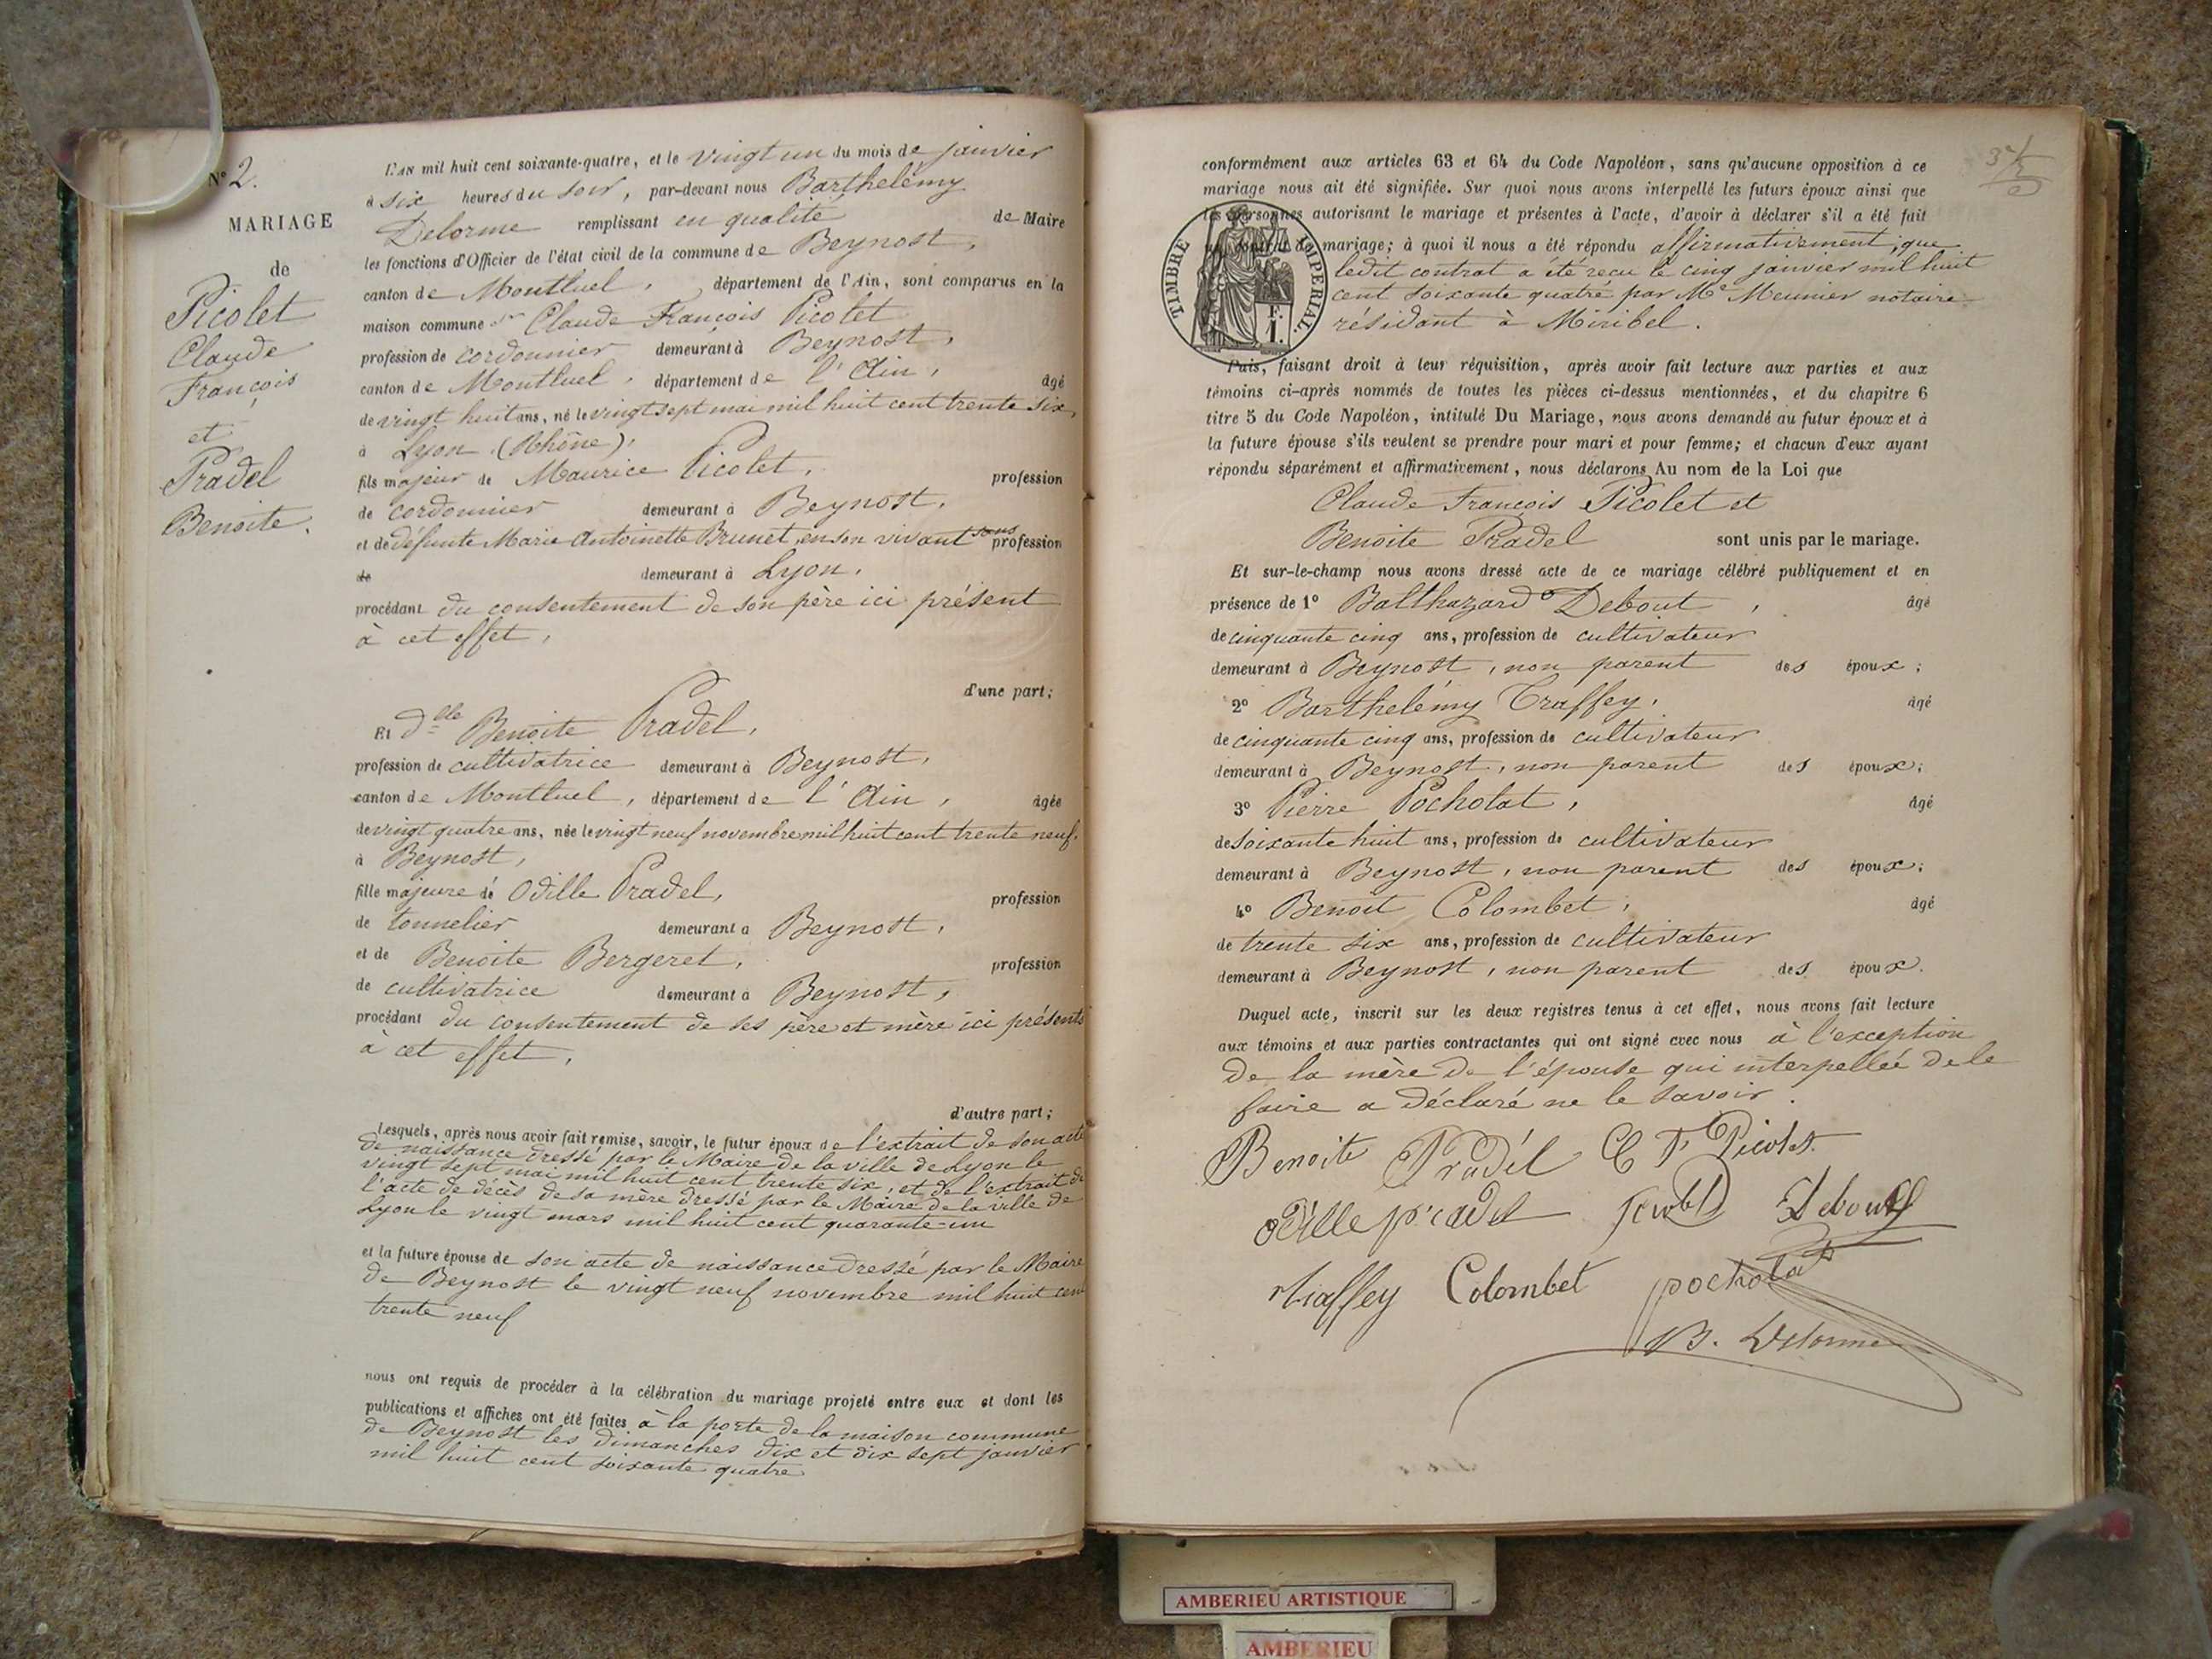 N° 2.
MARIAGE
de
Picolet
Claude
François
et
Pradel
Benoite.
L'AN mil huit cent soixante-quatre, et le vingt un du mois de janvier
à six heures du soir, par-devant nous Barthelémy
Delorme remplissant en qualité de Maire
les fonctions d'Officier de l'état civil de la commune de Beynost,
canton de Montluel, département de l'Ain, sont comparus en la
maison commune sr Claude François Picolet
profession de cordonnier demeurant à Beynost,
canton de Montluel, département de l'Ain, âgé
de vingt huit ans, né le vingt sept mai mil huit cent trente six,
à Lyon (Rhône),
fils majeur de Maurice Picolet, profession
de cordonnier demeurant à Beynost,
et de défunte Marie Antoinette Brunet, en son vivant sans profession
de demeurant à Lyon,
procédant du consentement de son père ici présent
à cet effet,
d'une part;
Et dlle Benoite Pradel,
profession de cultivatrice demeurant à Beynost,
canton de Montluel, département de l'Ain, âgée
de vingt quatre ans, née le vingt neuf novembre mil huit cent trente neuf,
à Beynost,
fille majeure de Odille Pradel, profession
de tonnelier demeurant à Beynost,
et de Benoite Bergeret, profession
de cultivatrice demeurant à Beynost,
procédant du consentement de ses père et mère ici présents
à cet effet,
d'autre part;
Lesquels, après nous avoir fait remise, savoir, le futur époux de l'extrait de son acte
de naissance dressé par le Maire de la ville de Lyon le
vingt sept mai mil huit cent trente six, et de l'extrait de
l'acte de décès de sa mère dressé par le Maire de la ville de
Lyon le vingt mars mil huit cent quarante-un
et la future épouse de son acte de naissance dressé par le Maire
de Beynost le vingt neuf novembre mil huit cent
trente neuf
nous ont requis de procéder à la célébration du mariage projeté entre eux et dont les
publications et affiches ont été faites à la porte de la maison commune
de Beynost les dimanches dix et dix sept janvier
mil huit cent soixante quatre
conformément aux articles 63 et 64 du Code Napoléon, sans qu'aucune opposition à ce
mariage nous ait été signifiée. Sur quoi nous avons interpellé les futurs époux ainsi que
les personnes autorisant le mariage et présentes à l'acte, d'avoir à déclarer s'il a été fait
un contrat de mariage; à quoi il nous a été répondu affirmativement; que
ledit contrat a été reçu le cinq janvier mil huit
cent soixante quatre par Me Meunier notaire
résidant à Miribel.
TIMBRE IMPERIAL.
1. F.
Puis, faisant droit à leur réquisition, après avoir fait lecture aux parties et aux
témoins ci-après nommés de toutes les pièces ci-dessus mentionnées, et du chapitre 6
titre 5 du Code Napoléon, intitulé Du Mariage, nous avons demandé au futur époux et à
la future épouse s'ils veulent se prendre pour mari et pour femme; et chacun d'eux ayant
répondu séparément et affirmativement, nous déclarons Au nom de la Loi que
Claude François Picolet et
Benoite Pradel sont unis par le mariage.
Et sur-le-champ nous avons dressé acte de ce mariage célébré publiquement et en
présence de 1° Balthazard Debout, âgé
de cinquante cinq ans, profession de cultivateur
demeurant à Beynost, non parent des époux;
2° Barthelémy Traffey, âgé
de cinquante cinq ans, profession de cultivateur
demeurant à Beynost, non parent des époux;
3° Pierre Pocholat, âgé
de soixante huit ans, profession de cultivateur
demeurant à Beynost, non parent des époux;
4° Benoit Colombet, âgé
de trente six ans, profession de cultivateur
demeurant à Beynost, non parent des époux.
Duquel acte, inscrit sur les deux registres tenus à cet effet, nous avons fait lecture
aux témoins et aux parties contractantes qui ont signé avec nous à l'exception
de la mère de l'épouse qui interpellée de le
faire a déclaré ne le savoir.
Benoite Pradél C F Picolet
Odille pradel Debout
traffey Colombet pocholat
B. Delorme
AMBERIEU ARTISTIQUE
AMBERIEU